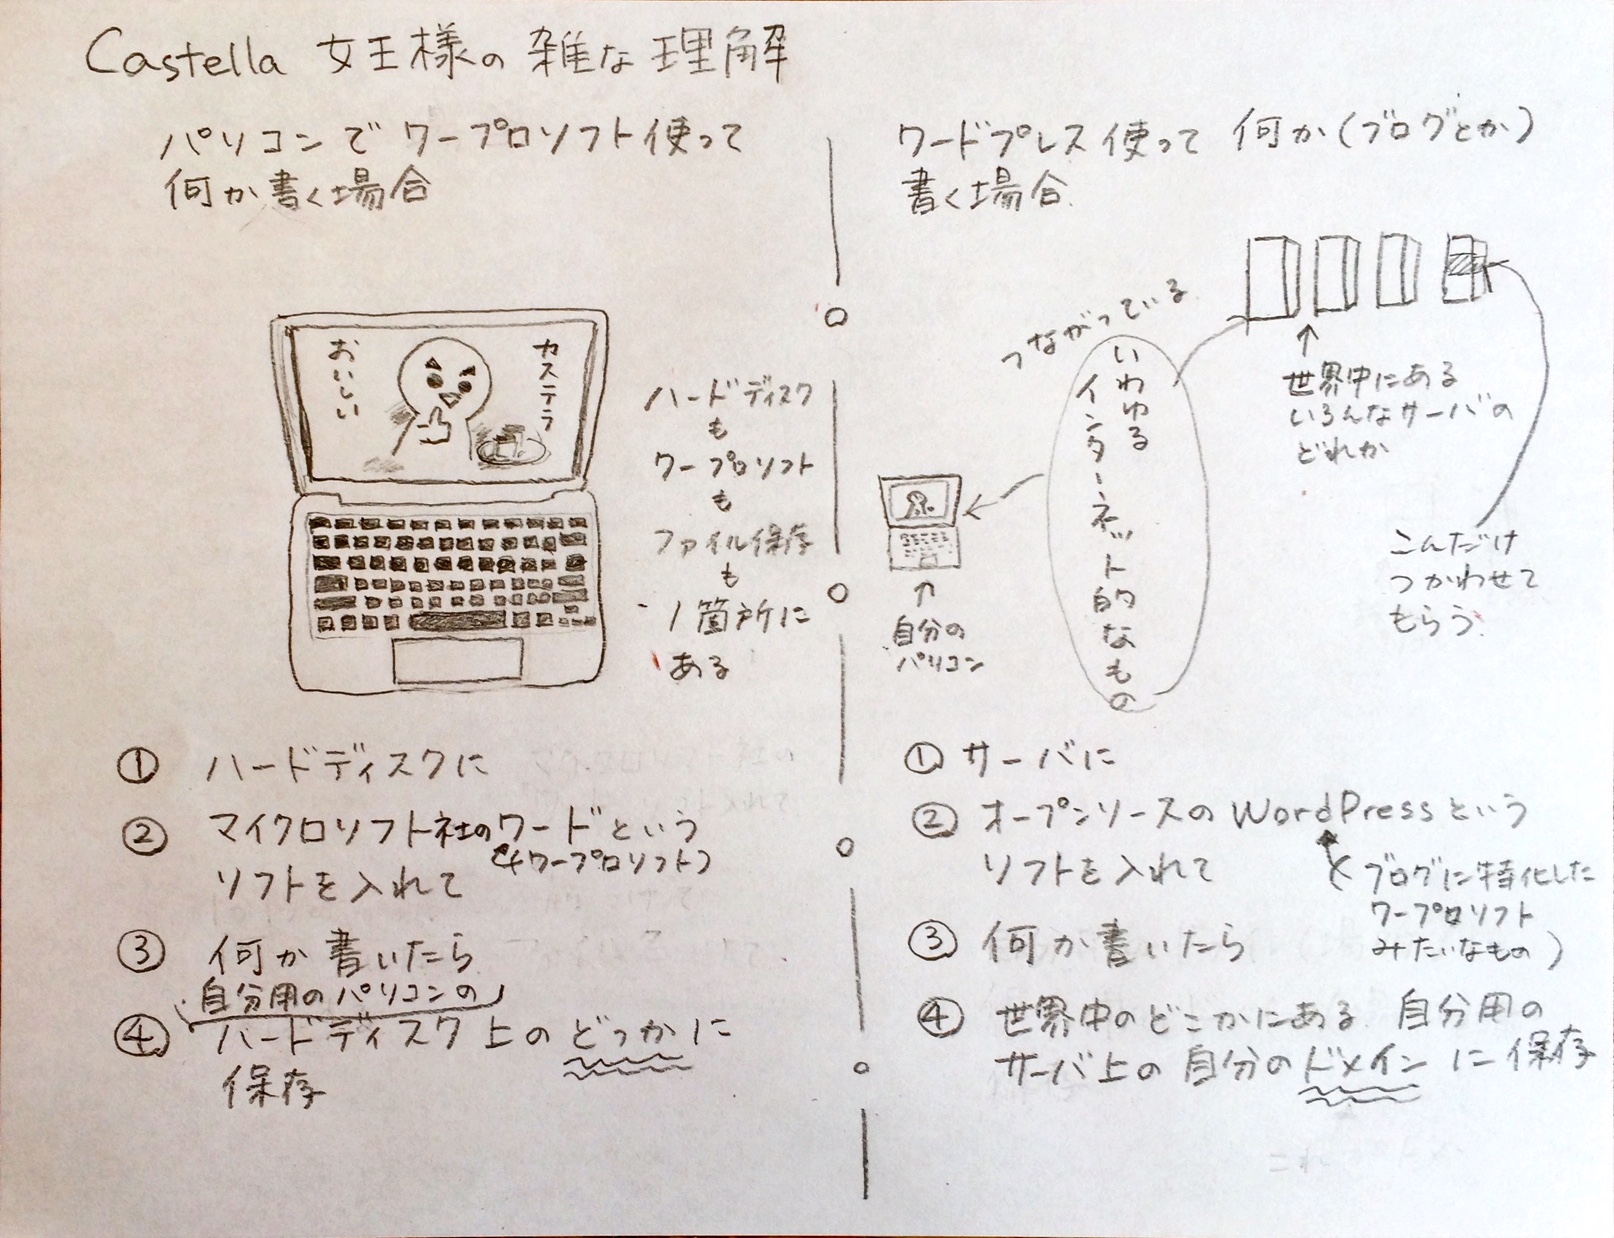 Castella 女王様の雑な理解
パソコンでワープロソフト使って
何か書く場合
カステラ
おいしい
ハードディスク
も
ワープロソフト
も
ファイル保存
も
1箇所に
ある
① ハードディスクに
② マイクロソフト社のワードという
(←ワープロソフト)
ソフトを入れて
③ 何か書いたら
(自分用のパソコンの)
④ ハードディスク上のどっかに
保存
ワードプレス使って 何か(ブログとか)
書く場合
つながっている
いわゆる
インターネット的なもの
↑
世界中にある
いろんなサーバの
どれか
こんだけ
つかわせて
もらう
↑
自分の
パソコン
① サーバに
② オープンソースのWordPressという
ソフトを入れて
(ブログに特化した
ワープロソフト
みたいなもの)
③ 何か書いたら
④ 世界中のどこかにある 自分用の
サーバ上の自分のドメインに保存